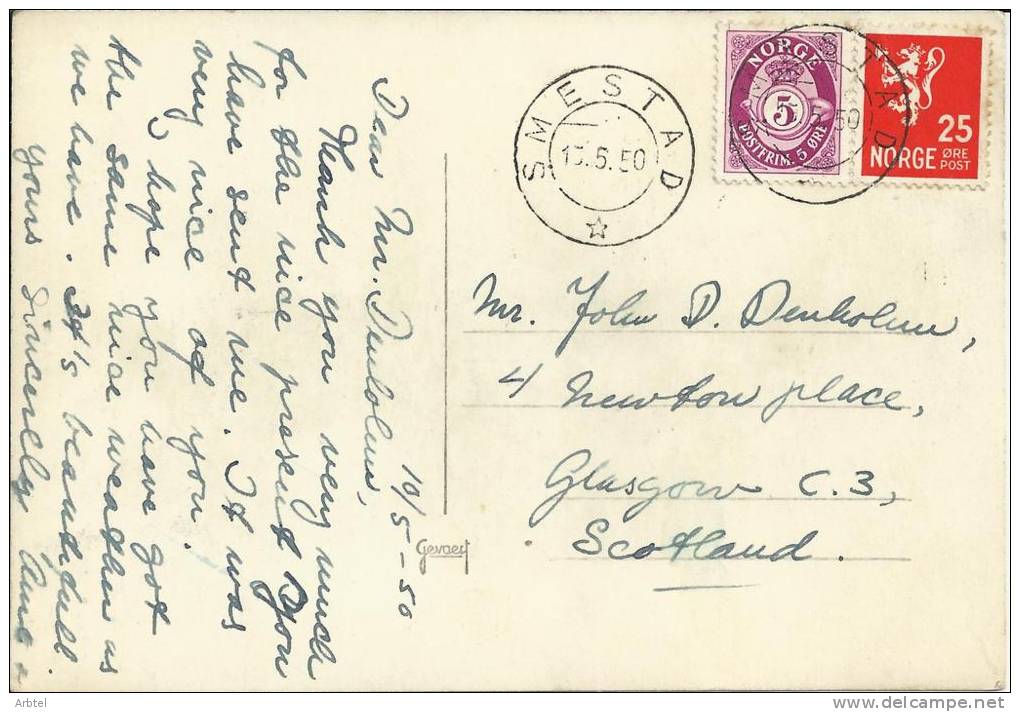 10/5-50
Dear Mr. Denholm,
Thank you very much
for the nice present you
have sent me. It was
very nice of you.
I hope you have got
the same nice weather as
we have. It's beautifull.
Yours Sincerelly
SMESTAD
5.50
NORGE
5
POSTFRIM. 5 ØRE
SMESTAD
5.50
25
NORGE ØRE
POST
Mr. John D. Denholm,
4 Newton place,
Glasgow C.3,
Scotland.
Gevaert
Arbtel
delcampe.net